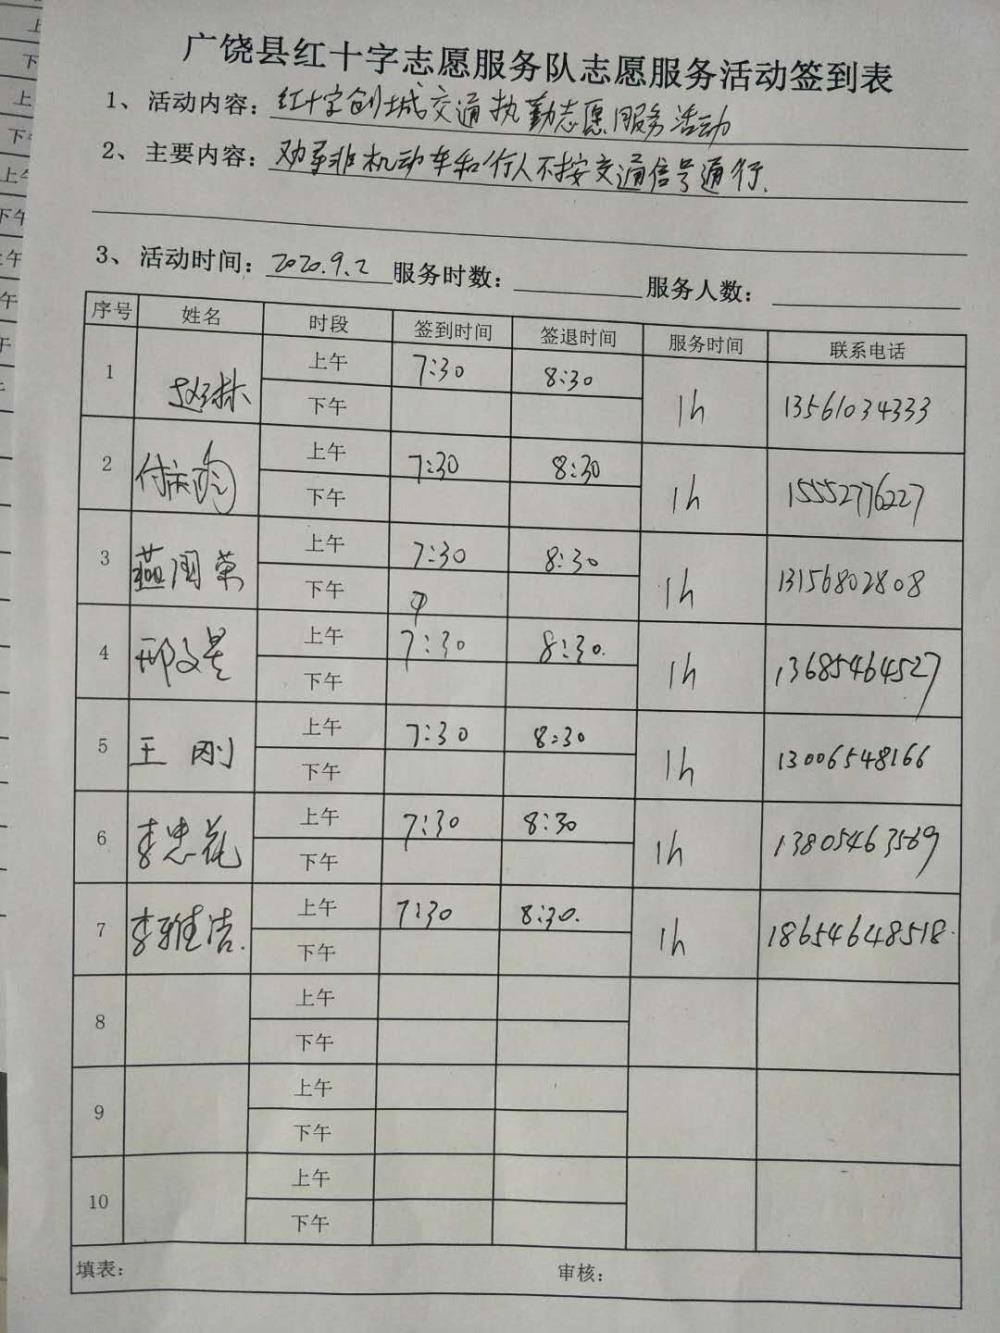 广饶县红十字志愿服务队志愿服务活动签到表
1、活动内容：红十字创城交通执勤志愿服务活动
2、主要内容：劝导非机动车和行人不按交通信号通行.
3、活动时间：2020.9.2 服务时数： 服务人数：
序号 姓名 时段 签到时间 签退时间 服务时间 联系电话
1 上午 7:30 8:30 1h 13561034333
下午
2 上午 7:30 8:30 1h 15552776227
下午
3 燕国荣 上午 7:30 8:30 1h 13156802808
下午
4 邢文景 上午 7:30 8:30. 1h 13685464527
下午
5 王刚 上午 7:30 8:30 1h 13006548166
下午
6 李忠花 上午 7:30 8:30 1h 13805463569
下午
7 李雅洁. 上午 7:30 8:30. 1h 18654648518.
下午
8 上午
下午
9 上午
下午
10 上午
下午
填表： 审核：